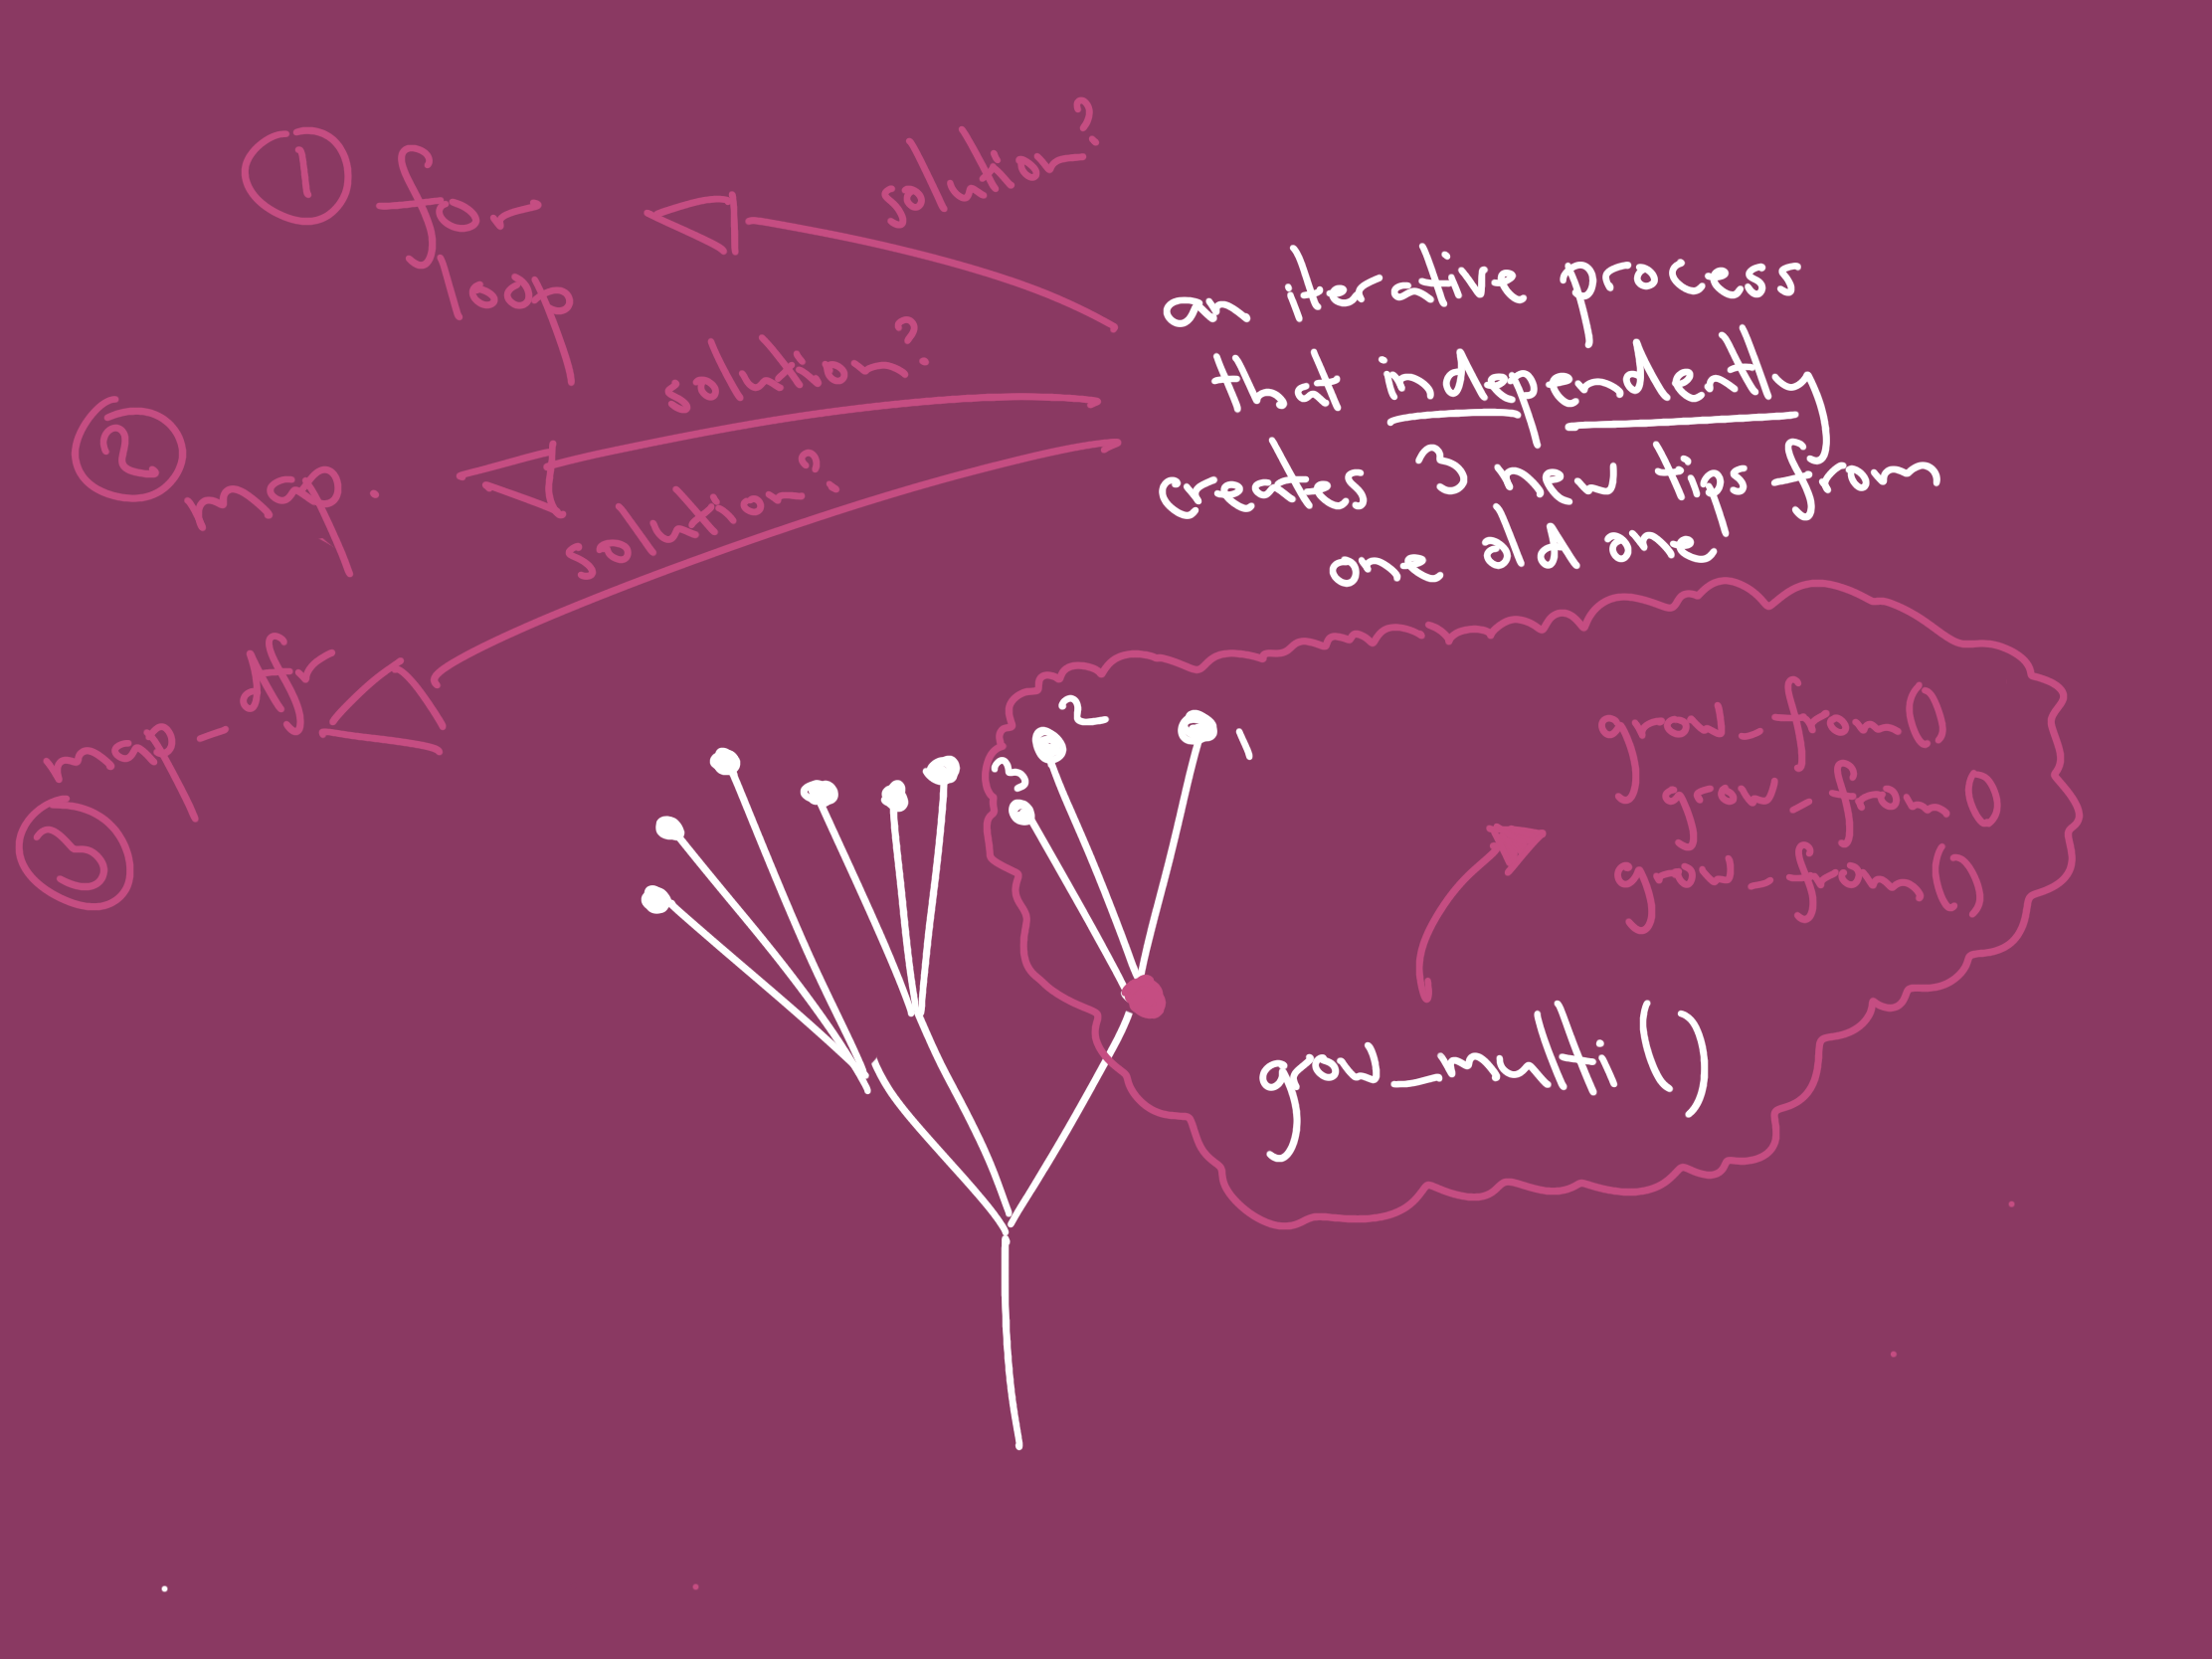 1 for
loop
solution?
2 map
solution?
3 map-dfr
solution?
an iterative process
that independently
creates 3 new tips from
one old one
grow_from()
grow_from()
grow_from()
grow_multi()
3
2
1